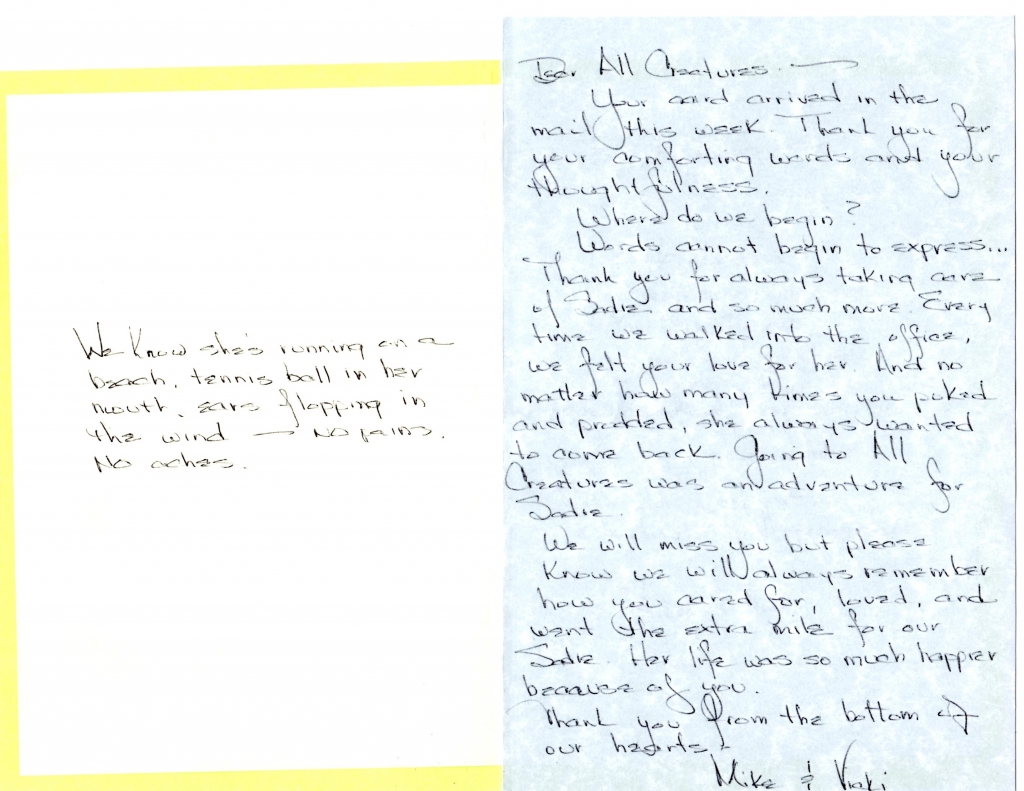 We know she's running on a
beach, tennis ball in her
mouth, ears flopping in
the wind — No pains.
No aches.
Dear All Creatures —
Your card arrived in the
mail this week. Thank you for
your comforting words and your
thoughtfulness.
Where do we begin?
Words cannot begin to express...
Thank you for always taking care
of Sadie and so much more. Every
time we walked into the office,
we felt your love for her. And no
matter how many times you poked
and prodded, she always wanted
to come back. Going to All
Creatures was an adventure for
Sadie.
We will miss you but please
know we will always remember
how you cared for, loved, and
went the extra mile for our
Sadie. Her life was so much happier
because of you.
Thank you from the bottom of
our hearts,
Mike & Vicki